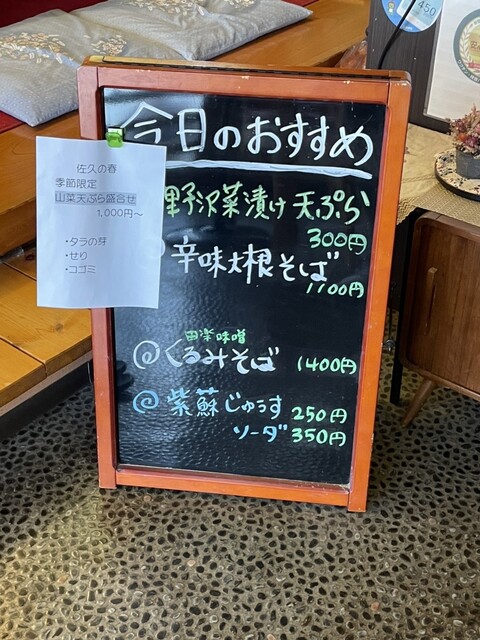 今日のおすすめ
野沢菜漬け 天ぷら
300円
辛味大根そば
1100円
田楽味噌
@くるみそば 1400円
@紫蘇じゅうす 250円
ソーダ 350円
佐久の春
季節限定
山菜天ぷら盛合せ
1,000円～
・タラの芽
・せり
・コゴミ
450